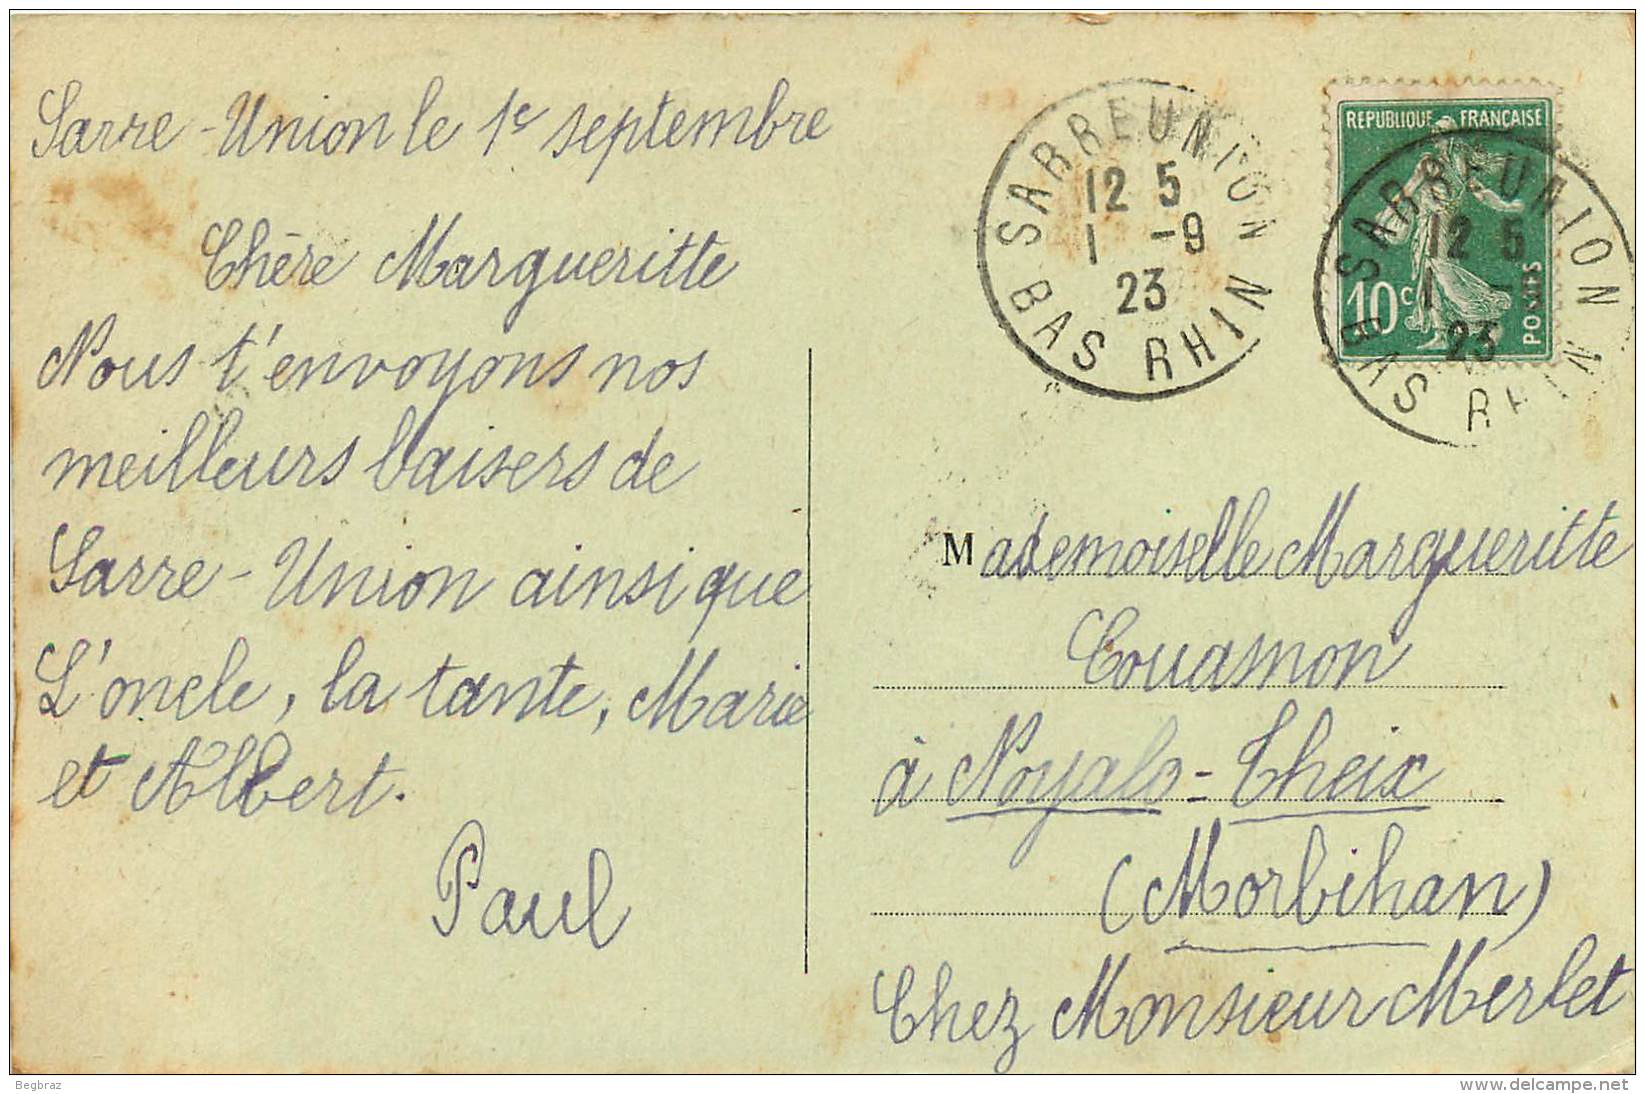 Sarre-Union le 1e septembre
Chère Margueritte
Nous t'envoyons nos
meilleurs baisers de
Sarre-Union ainsi que
L'oncle, la tante, Marie
et Albert.
Paul
SARREUNION
12 5
1 -9
23
BAS RHIN
REPUBLIQUE FRANÇAISE
10c
POSTES
SARREUNION
12 5
1
23
BAS RHIN
Mademoiselle Margueritte
Couasnon
à Noyalo-Theix
(Morbihan)
Chez Monsieur Merlet
Begbraz
delcampe.net